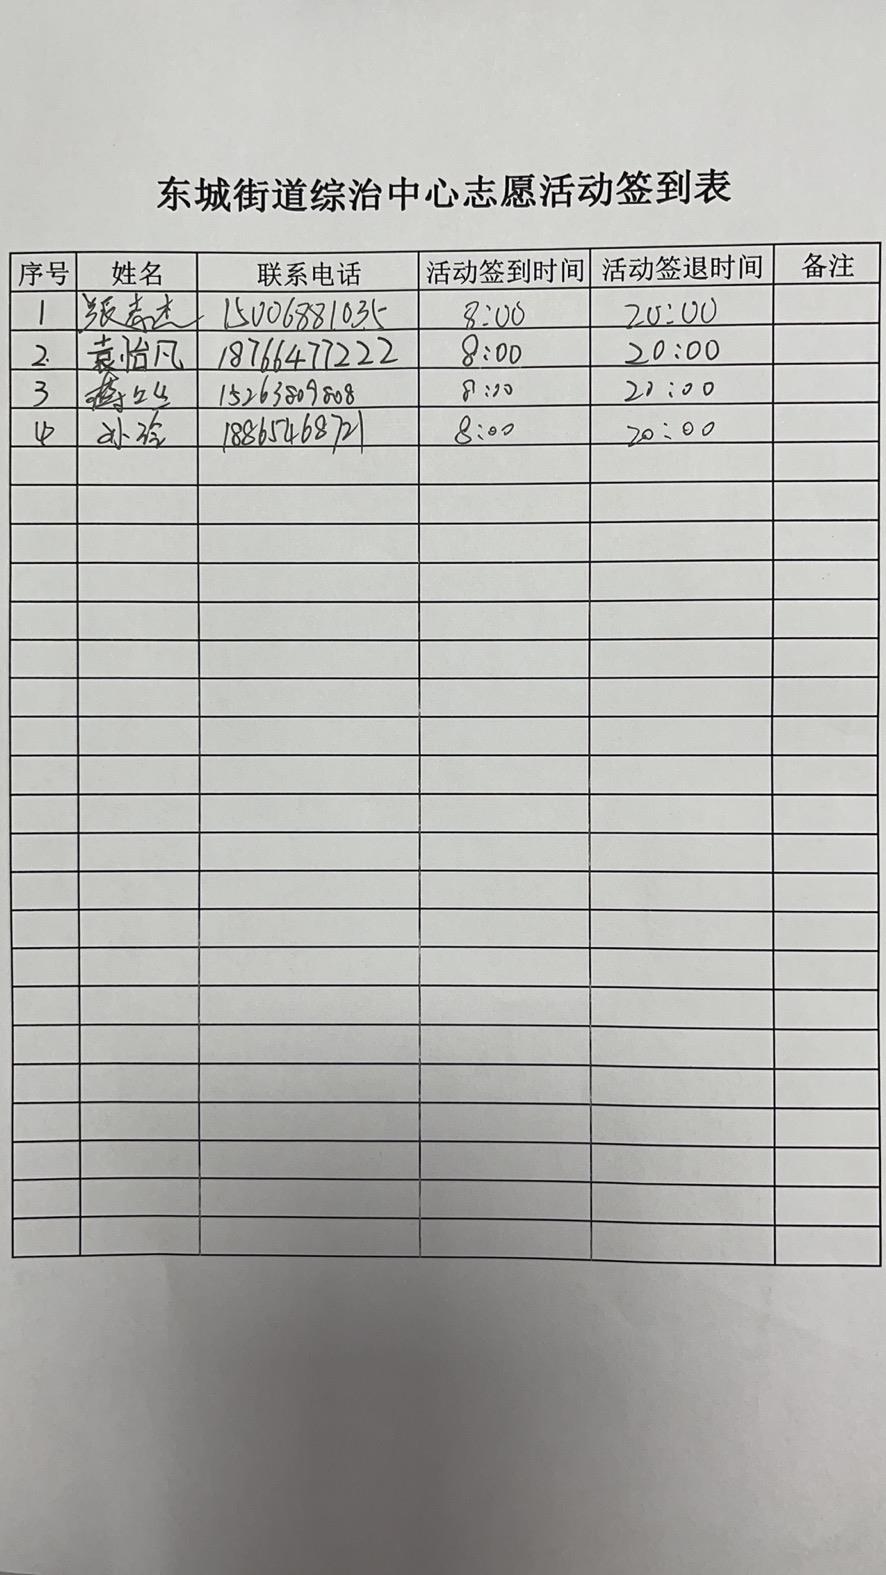 东城街道综治中心志愿活动签到表
序号 姓名 联系电话 活动签到时间 活动签退时间 备注
1 张寿杰 15006881035 8:00 20:00
2 袁怡凡 18766477222 8:00 20:00
3 15263809808 8:00 20:00
4 孙玲 18865468721 8:00 20:00